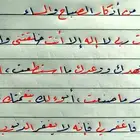 من أذكار الصباح والمساء
ربي لا إله إلا أنت خلقتني
عهدك ووعدك ما استطعت
ما صنعت، أبوء لك بنعمتك
فاغفر لي فإنه لا يغفر الذنوب